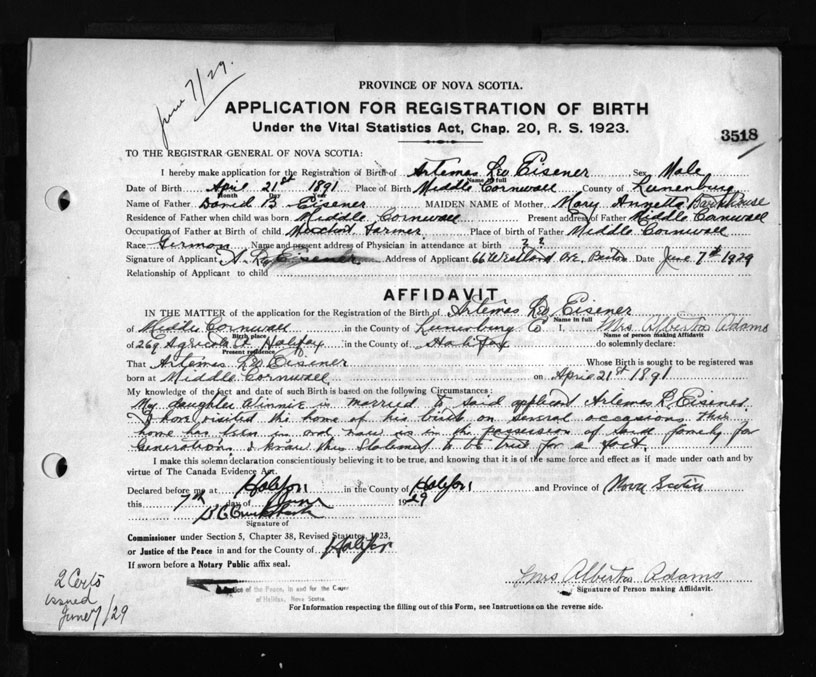 June 7/29.
PROVINCE OF NOVA SCOTIA.
APPLICATION FOR REGISTRATION OF BIRTH
Under the Vital Statistics Act, Chap. 20, R. S. 1923.
3518
TO THE REGISTRAR GENERAL OF NOVA SCOTIA:
I hereby make application for the Registration of Birth of Artemas Leo Eisener Sex Male
Name in full
Date of Birth April 21st 1891 Place of Birth Middle Cornwall County of Lunenburg
Month Day Year
Name of Father David B Eisener MAIDEN NAME of Mother Mary Annetta Barkhouse
Residence of Father when child was born Middle Cornwall Present address of Father Middle Cornwall
Occupation of Father at Birth of child Merchant Farmer Place of birth of Father Middle Cornwall
Race German Name and present address of Physician in attendance at birth ? ?
Signature of Applicant A. Leo Eisener Address of Applicant 66 Westland Ave. Boston Date June 7th 1929
Relationship of Applicant to child
AFFIDAVIT
IN THE MATTER of the application for the Registration of the Birth of Artemas Leo Eisener
Name in full
of Middle Cornwall in the County of Lunenburg Co. I, Mrs Alberton Adams
Birth place Name of person making Affidavit
of 269 Agricola St Halifax in the County of Halifax do solemnly declare:
Present residence
That Artemas Leo Eisener Whose Birth is sought to be registered was
born at Middle Cornwall on April 21st 1891
My knowledge of the fact and date of such Birth is based on the following Circumstances:
My daughter Minnie is married to said applicant Artemas L. Eisener
I have visited the home of his birth on several occasions this
home has been in and now is in the possession of said family for
Generations I know this Statement to be true for a fact.
I make this solemn declaration conscientiously believing it to be true, and knowing that it is of the same force and effect as if made under oath and by
virtue of The Canada Evidency Act.
Declared before me at Halifax in the County of Halifax and Province of Nova Scotia
this 7th day of June 1929
Signature of
Commissioner under Section 5, Chapter 38, Revised Statutes, 1923,
or Justice of the Peace in and for the County of Halifax
If sworn before a Notary Public affix seal.
Mrs Alberton Adams
Signature of Person making Affidavit.
of the Peace, in and for the
of Halifax, Nova Scotia.
For Information respecting the filling out of this Form, see Instructions on the reverse side.
2 Certs
issued
June 7/29